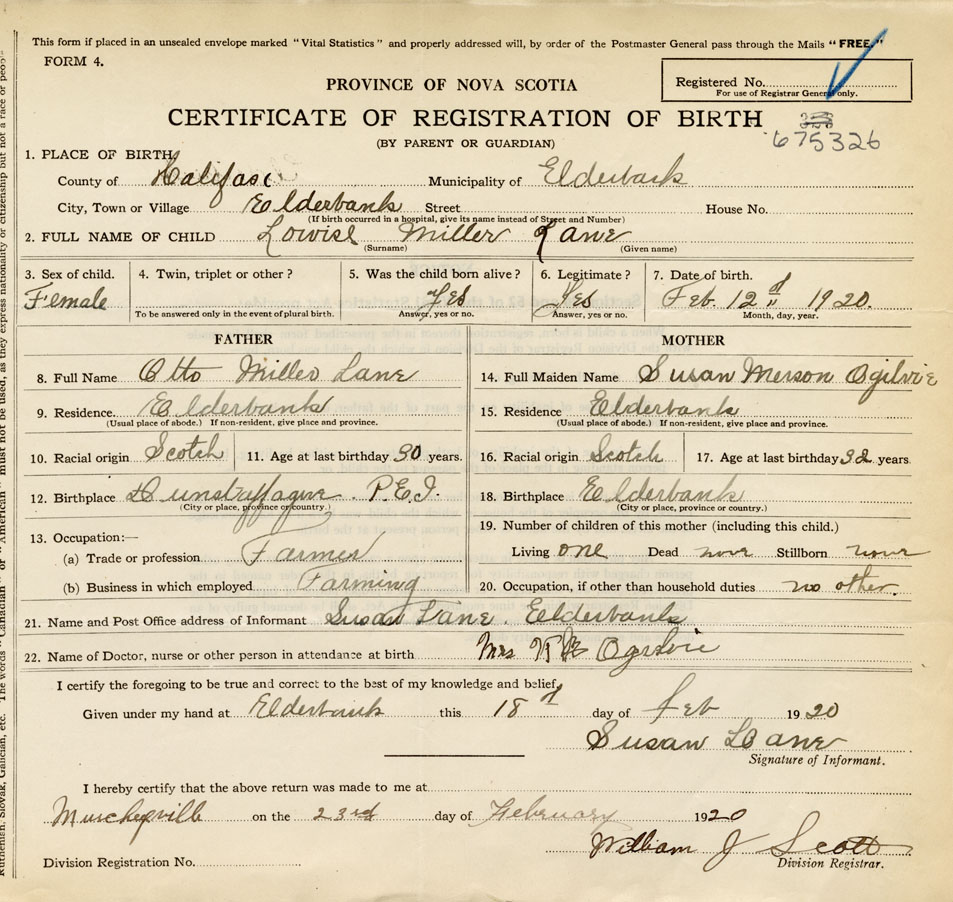 This form if placed in an unsealed envelope marked "Vital Statistics" and properly addressed will, by order of the Postmaster General pass through the Mails "FREE."
FORM 4.
Registered No.
For use of Registrar General only.
PROVINCE OF NOVA SCOTIA
CERTIFICATE OF REGISTRATION OF BIRTH
675326
(BY PARENT OR GUARDIAN)
1. PLACE OF BIRTH
County of Halifax Municipality of Elderbank
City, Town or Village Elderbank Street House No.
(If birth occurred in a hospital, give its name instead of Street and Number)
2. FULL NAME OF CHILD Lowise Miller Lane
(Surname) (Given name)
3. Sex of child. 4. Twin, triplet or other? 5. Was the child born alive? 6. Legitimate? 7. Date of birth.
Female Yes Yes Feb. 12 d 1920.
To be answered only in the event of plural birth. Answer, yes or no. Answer, yes or no. Month, day, year.
FATHER MOTHER
8. Full Name Otto Miller Lane 14. Full Maiden Name Susan Merson Ogilvie
9. Residence Elderbank 15. Residence Elderbank
(Usual place of abode.) If non-resident, give place and province. (Usual place of abode.) If non-resident, give place and province.
10. Racial origin Scotch 11. Age at last birthday 30 years. 16. Racial origin Scotch 17. Age at last birthday 32 years.
12. Birthplace P.E.I. 18. Birthplace Elderbank
(City or place, province or country.) (City or place, province or country.)
13. Occupation:— 19. Number of children of this mother (including this child.)
(a) Trade or profession Farmer Living one Dead none Stillborn none
(b) Business in which employed Farming 20. Occupation, if other than household duties no other.
21. Name and Post Office address of Informant Susan Lane. Elderbank
22. Name of Doctor, nurse or other person in attendance at birth Mrs Ogilvie
I certify the foregoing to be true and correct to the best of my knowledge and belief.
Given under my hand at Elderbank this 18 d day of feb 1920
Susan Lane
Signature of Informant.
I hereby certify that the above return was made to me at
on the 23rd day of February 1920
William J Scott
Division Registration No. Division Registrar.